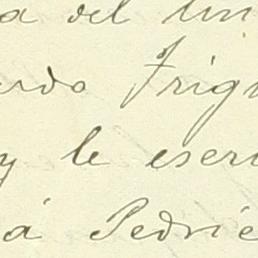 a del
Frig
y le escri
á Pedrie